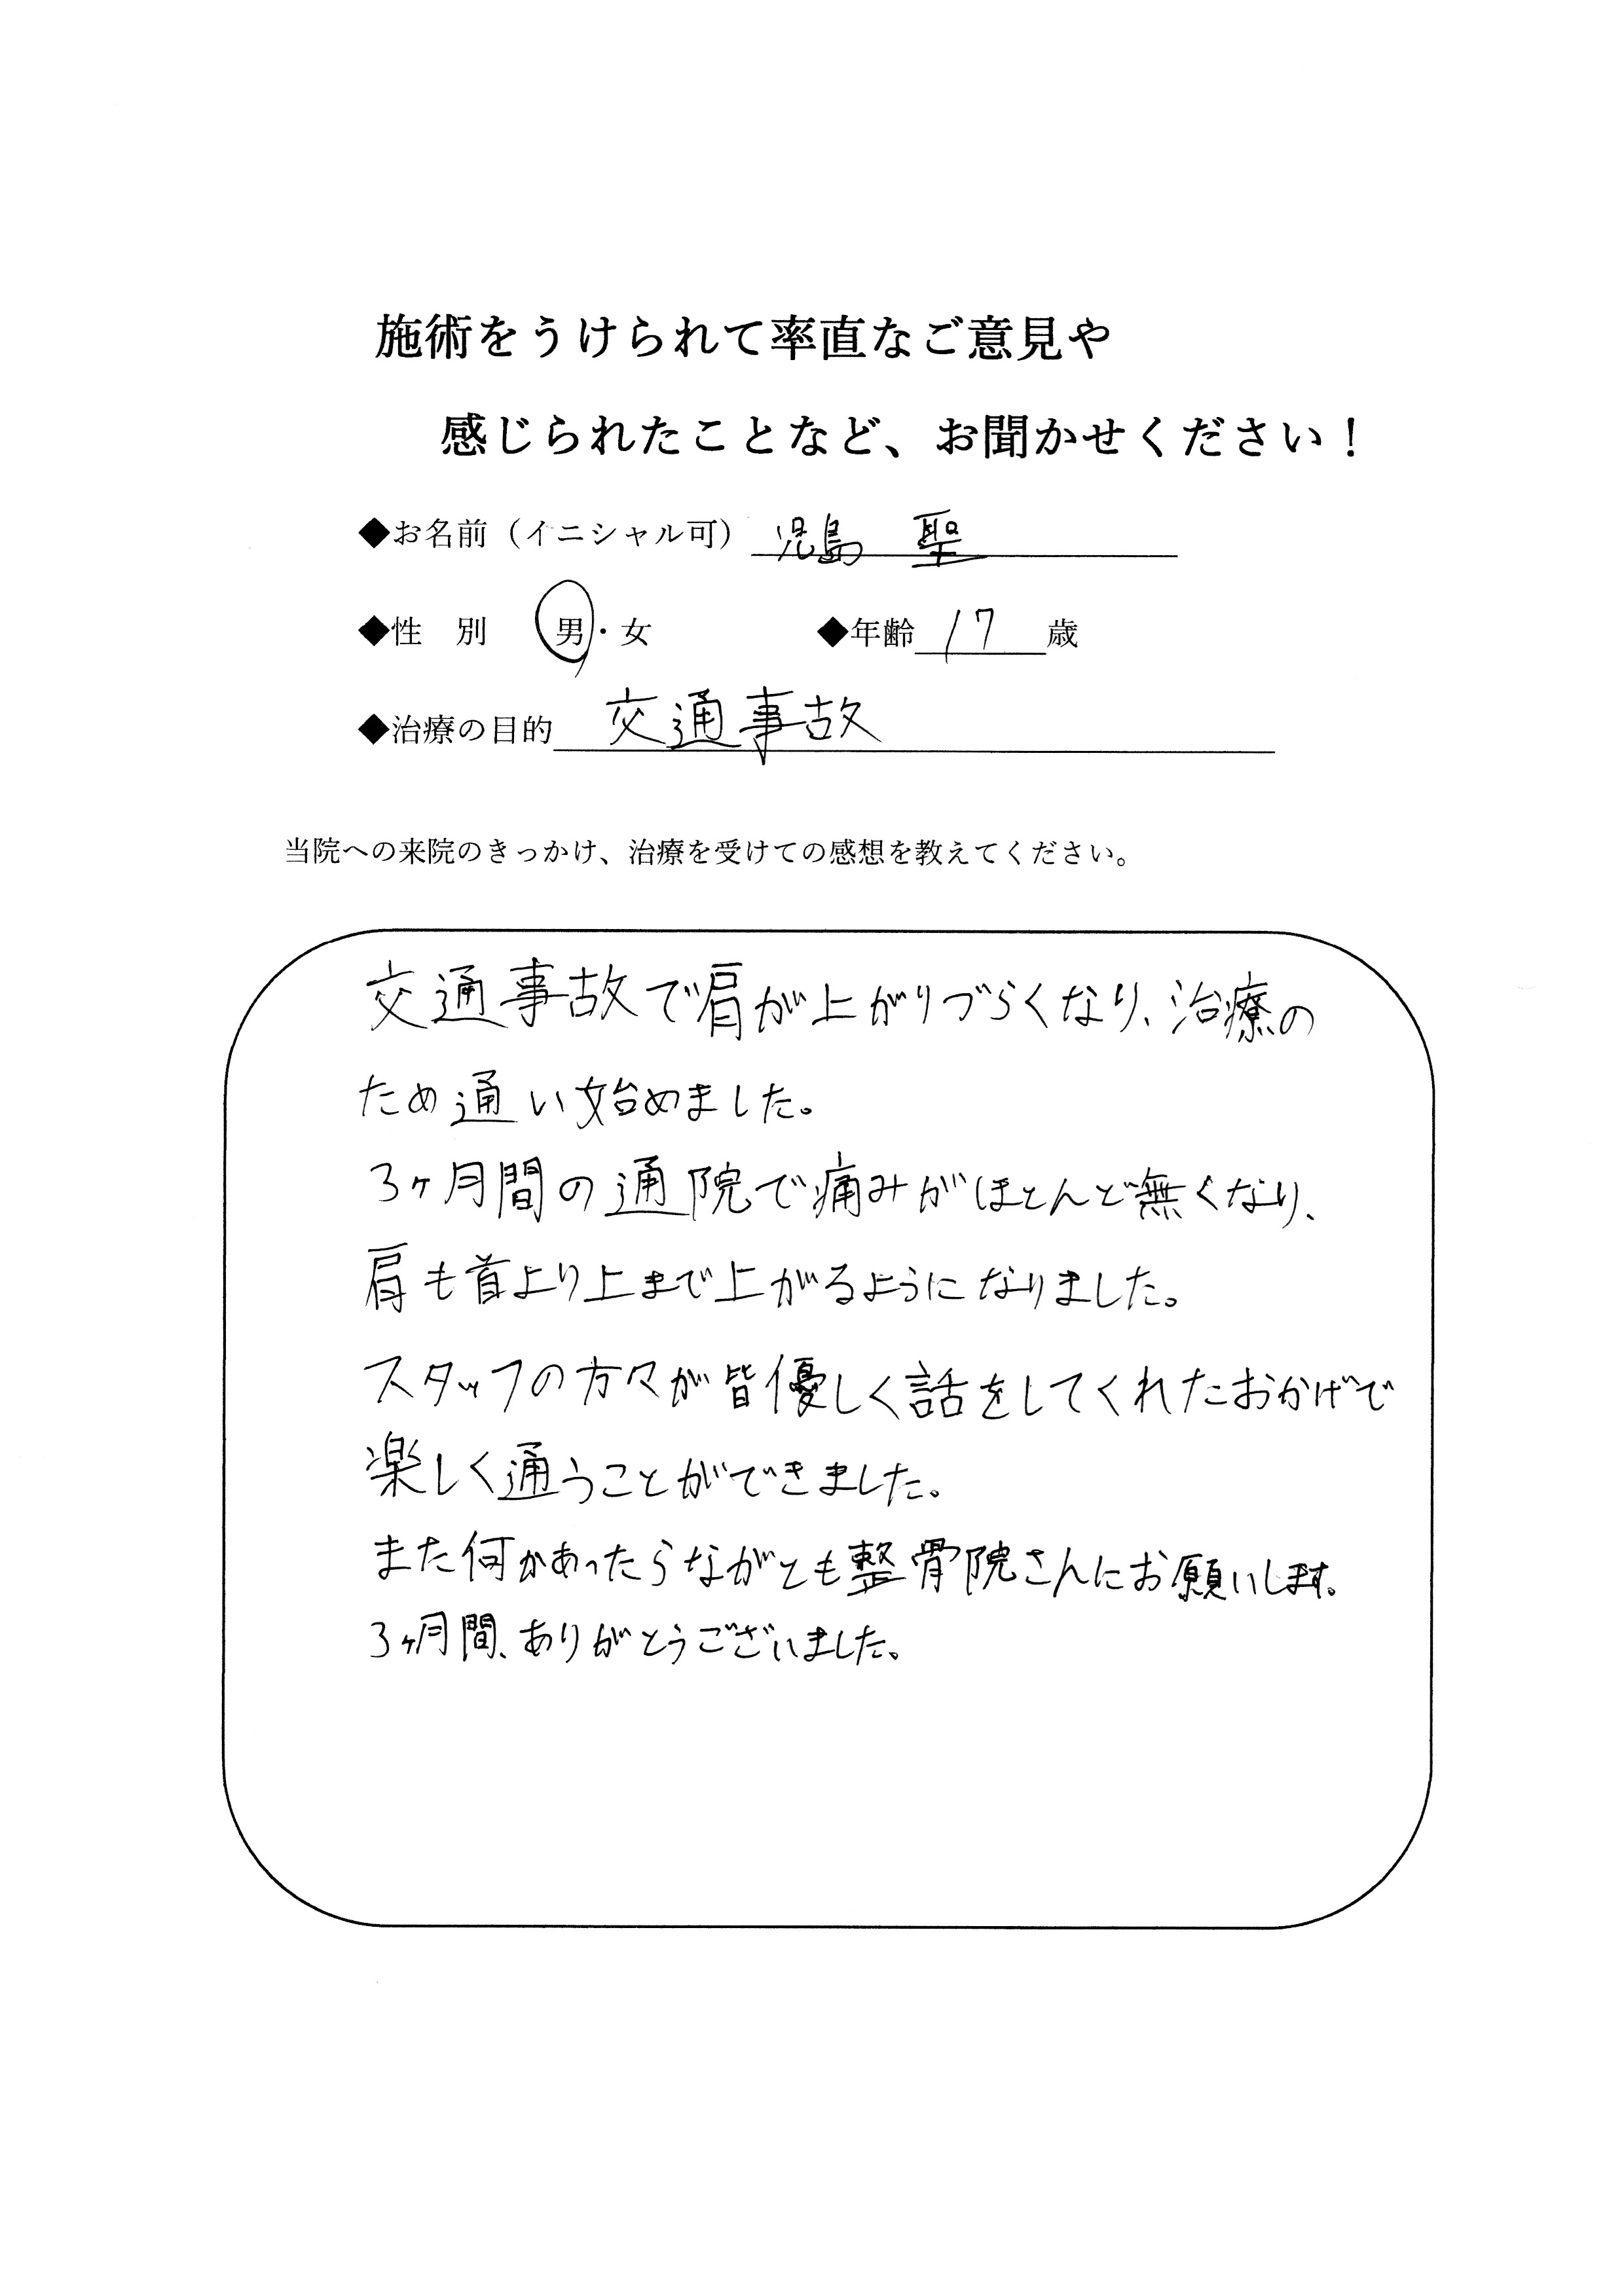 施術をうけられて率直なご意見や
感じられたことなど、お聞かせください！
◆お名前（イニシャル可） 児島 聖
◆性 別 男・女 ◆年齢 17 歳
◆治療の目的 交通事故
当院への来院のきっかけ、治療を受けての感想を教えてください。
交通事故で肩が上がりづらくなり、治療の
ため通い始めました。
3ヶ月間の通院で痛みがほとんど無くなり、
肩も首より上まで上がるようになりました。
スタッフの方々が皆優しく話をしてくれたおかげで
楽しく通うことができました。
また何かあったらながとも整骨院さんにお願いします。
3ヶ月間、ありがとうございました。